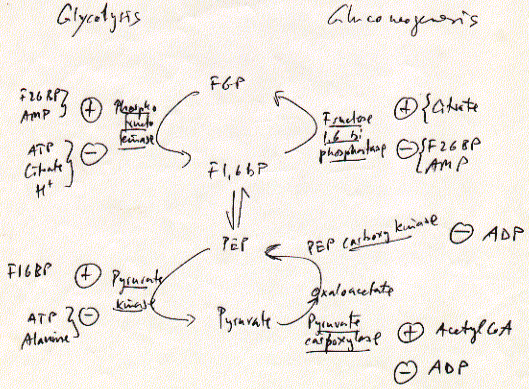 Glycolysis
Gluconeogenesis
F6P
F26BP
AMP
+
Phospho
fructo
kinase
ATP
Citrate
H+
−
Fructose
1,6 bi
phosphatase
+
Citrate
−
F26BP
AMP
F1,6bP
PEP
PEP carboxykinase
−
ADP
F16BP
+
Pyruvate
kinase
ATP
Alanine
−
oxaloacetate
Pyruvate
Pyruvate
carboxylase
+
Acetyl CoA
−
ADP